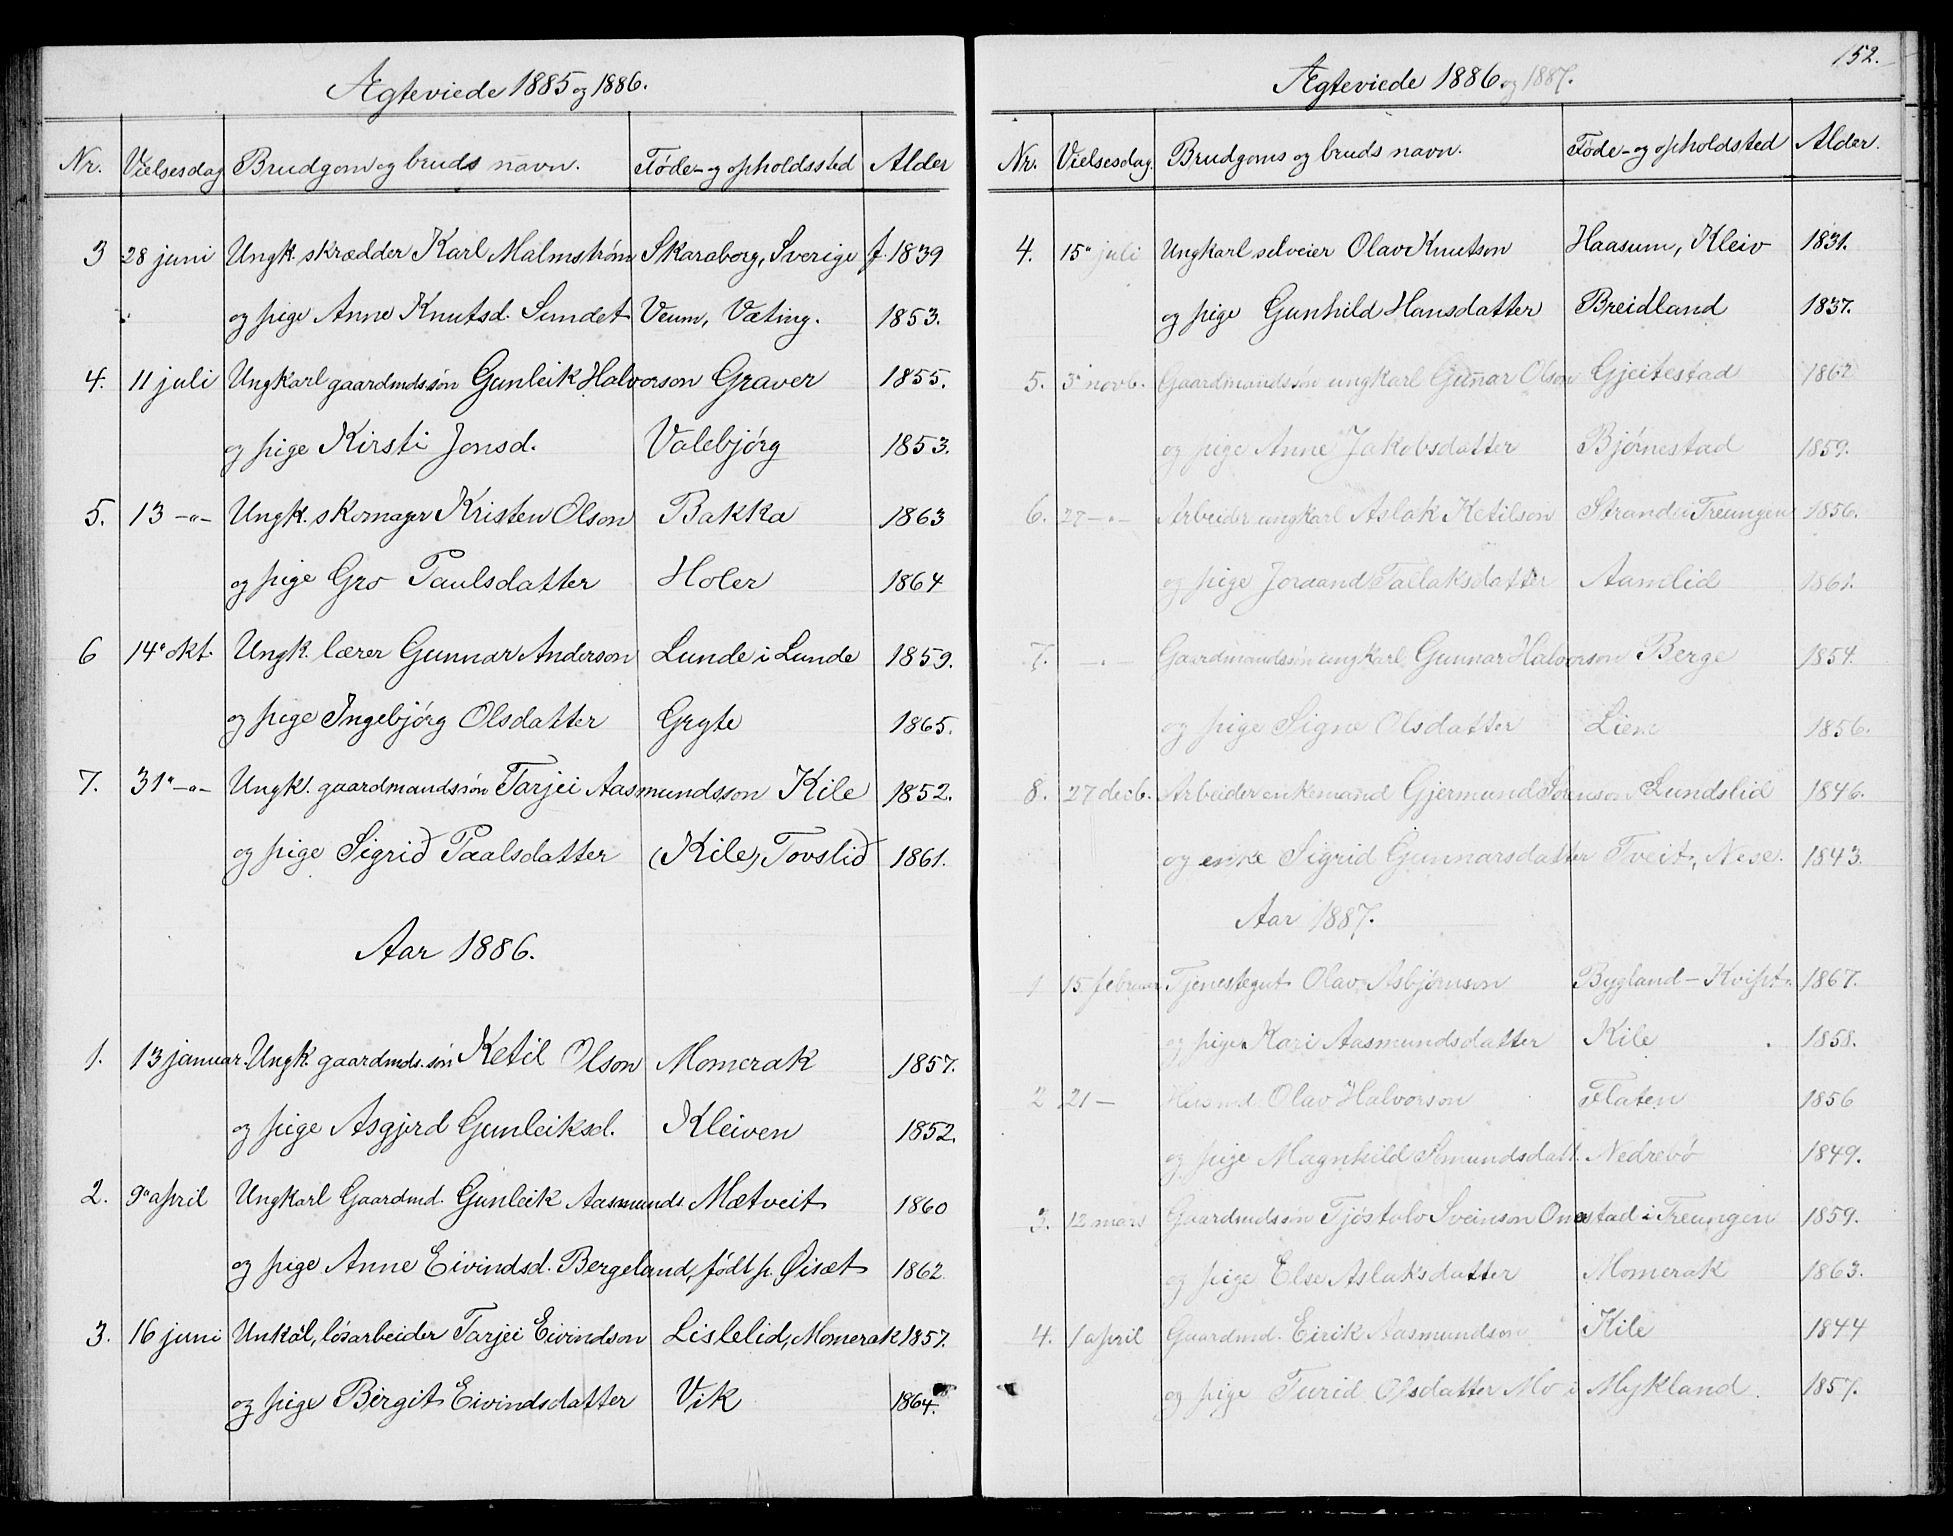 Ægteviede 1885 og 1886.
Nr. Vielsesdag Brudgom og bruds navn. Føde- og opholdssted Alder
3 28 juni Ungk. skrædder Karl Malmstrøm Skaraborg, Sverige f. 1839
og pige Anne Knutsd. Sundet Veum, Væting. 1853.
4. 11 juli Ungkarl gaardmdssøn Gunleik Halvorson Graver 1855.
og pige Kirsti Jonsd. Valebjørg 1853.
5. 13 -"- Ungk. skomager Kristen Olson Bakka 1863
og pige Gro Paulsdatter Holer 1864
6 14" okt. Ungk. lærer Gunnar Anderson Lunde i Lunde 1859.
og pige Ingebjørg Olsdatter Gryte 1865.
7. 31" -"- Ungk. gaardmandssøn Tarjei Aasmundsson Kile 1852.
og pige Sigrid Paalsdatter (Kile) Tovslid 1861.
Aar 1886.
1. 13 januar. Ungk. gaardmds.søn Ketil Olson Momerak 1857.
og pige Asgjerd Gunleiksd. Kleiven 1852.
2. 9" april Ungkarl Gaardmd. Gunleik Aasmunds. Mætveit 1860
og pige Anne Eivindsd. Bergeland, født p. Øisæt 1862.
3. 16 juni Unkal, løsarbeider Tarjei Eivindson Lislelid, Momerak 1857.
og pige Birgit Eivindsdatter Vik 1864.
152.
Ægteviede 1886 og 1887.
Nr. Vielsesdag. Brudgoms og bruds navn. Føde- og opholdsted Alder.
4. 15" juli Ungkarl selveier Olav Knutson Haasum, Kleiv 1831.
og pige Gunhild Hansdatter Breidland 1837.
5. 3" novb. Gaardmandssøn ungkarl Gunar Olson Gjeitestad 1862
og pige Anne Jakobsdatter Bjørnestad 1859.
6. 27 -"- Arbeider ungkarl Aslak Ketilson Strand i Treungen 1856.
og pige Joraand Tallaksdatter Aamlid 1861.
7. -"- Gaardmandssøn ungkarl Gunnar Halvorson Berge 1854.
og pige Signe Olsdatter Lien 1856.
8. 27 decb. Arbeider enkemand Gjermund Sørenson Lundslid 1846.
og enke Sigrid Gunnarsdatter Tveit, Nese. 1843.
Aar 1887.
1 15 februar Tjenestegut Olav Asbjørnson Bygland - Kvipt. 1867.
og pige Kari Aasmundsdatter Kile 1858.
2 21 - Husmd. Olav Halvorson Flaten 1856
og pige Magnhild Semundsdatt. Nedrebø 1849.
3. 12 mars Gaardmdssøn Tjøstolv Sveinson Onestad i Treungen 1859.
og pige Else Aslaksdatter Momerak 1863.
4. 1 april Gaardmd. Eirik Aasmundson Kile 1844
og pige Turid Olsdatter Mo i Mykland. 1857.